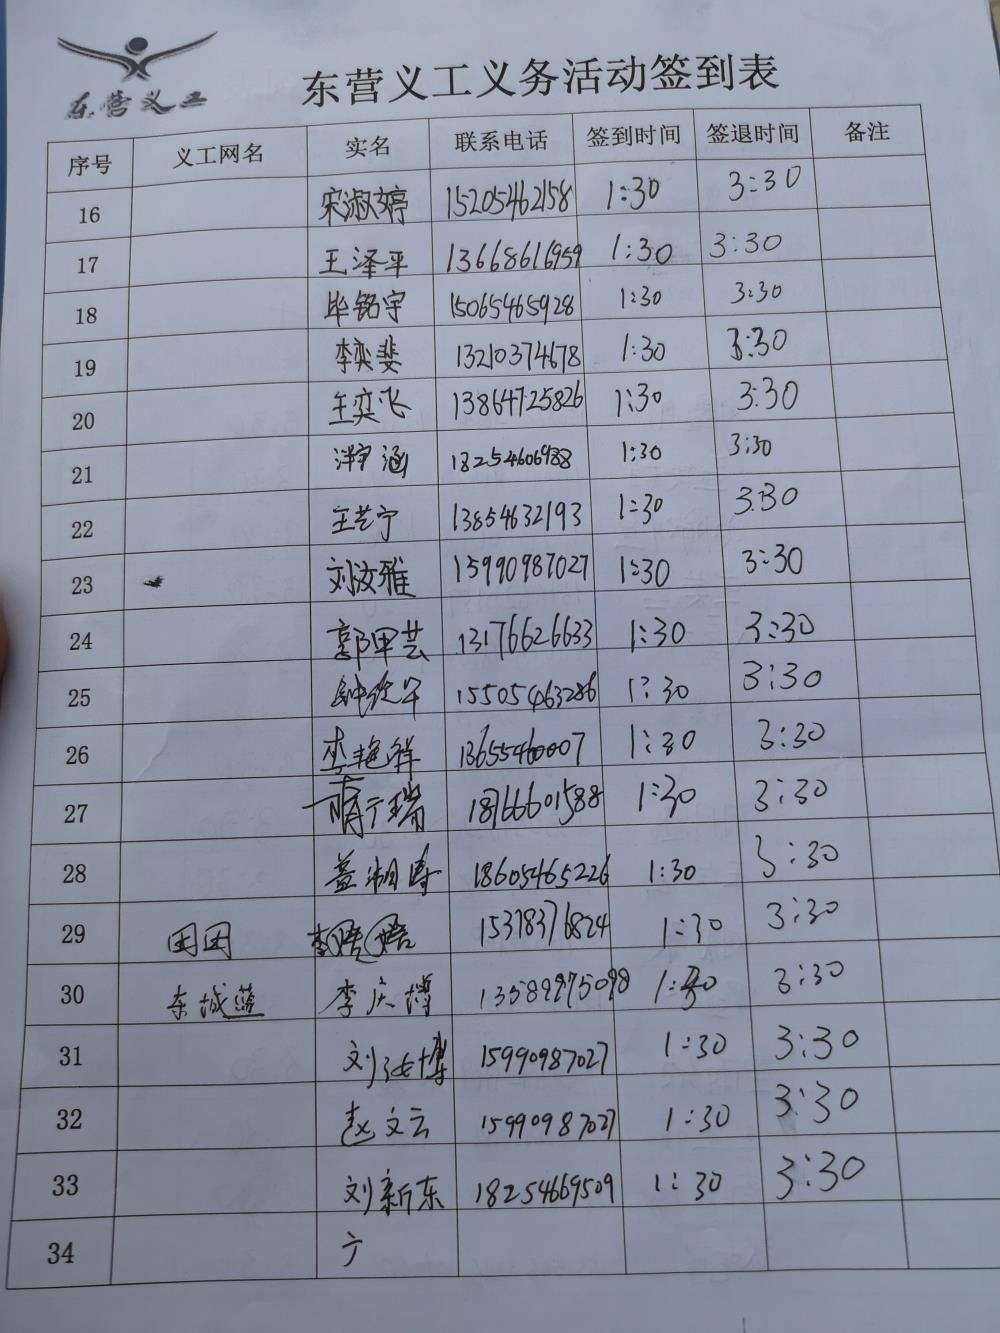 东营义工
东营义工义务活动签到表
序号 义工网名 实名 联系电话 签到时间 签退时间 备注
16 宋淑婷 15205462158 1:30 3:30
17 王泽平 13668616959 1:30 3:30
18 毕铭宇 15065465928 1:30 3:30
19 李奕斐 13210374678 1:30 3:30
20 王奕飞 13864725826 1:30 3:30
21 涵 18254606988 1:30 3:30
22 王艺宁 13854632193 1:30 3:30
23 刘汝雅 15990987027 1:30 3:30
24 郭甲芸 13176626633 1:30 3:30
25 15505463286 1:30 3:30
26 李艳祥 13655460007 1:30 3:30
27 瑞 18766601588 1:30 3:30
28 盖湘涛 18605465226 1:30 3:30
29 团团 李 15378376824 1:30 3:30
30 东城莲 李庆博 13589975098 1:30 3:30
31 刘汝博 15990987027 1:30 3:30
32 赵文云 15990987027 1:30 3:30
33 刘新东 18254669509 1:30 3:30
34